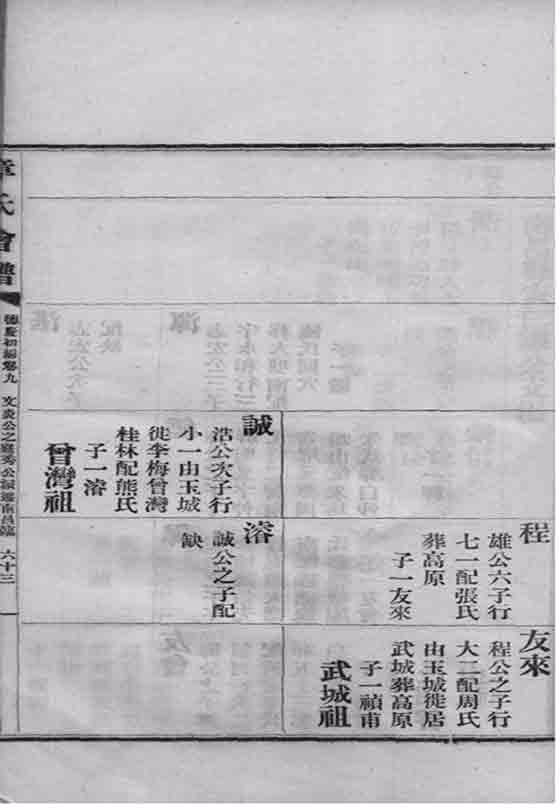 誠
浩公次子行
小一由玉城
徙李梅曾灣
桂林配熊氏
子一溶
曾灣祖
程
雄公六子行
七一配張氏
葬高原
子一友來
溶
誠公之子配
缺
友來
程公之子行
大二配周氏
由玉城徙居
武城葬高原
子一禎甫
武城祖
章氏會譜
德慶初編卷九
文炎公之庭秀公遷南昌臨
六十三